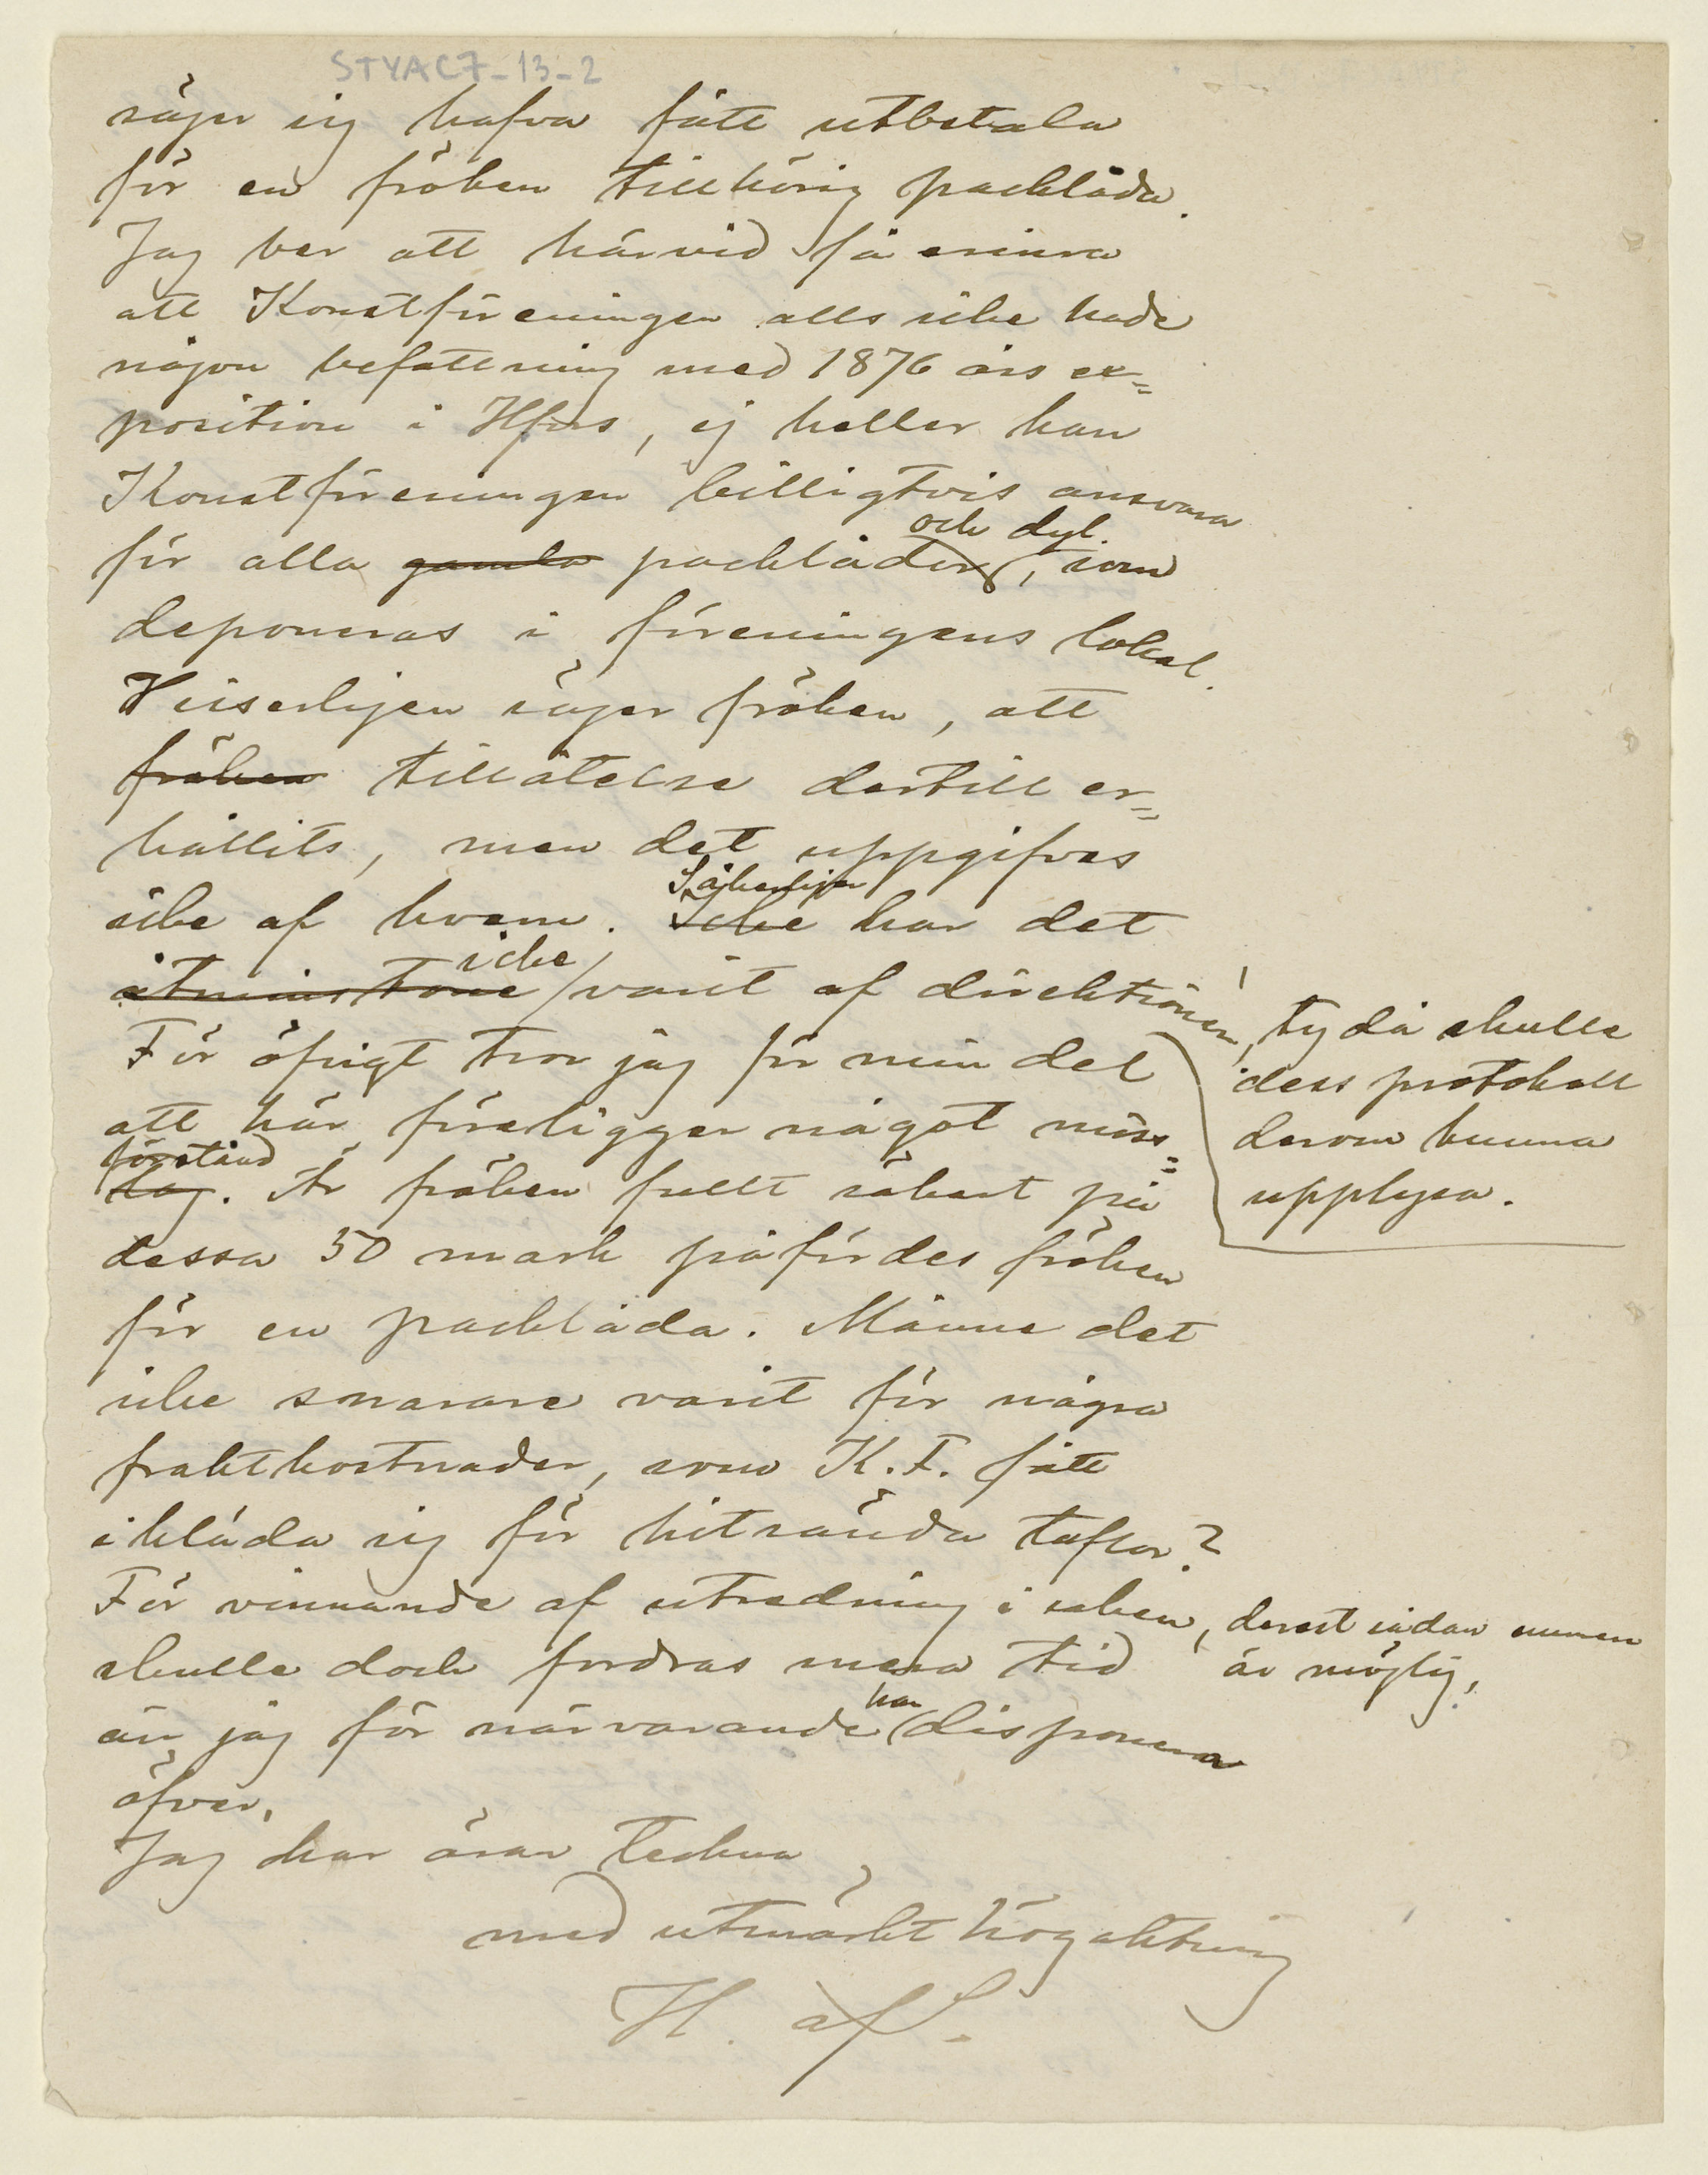 STYAC7-13-2
säger sig hafva fått utbetala
för en fröken tillhörig packlåda.
Jag ber att härvid få erinra
att Konstföreningen alls icke hade
någon befattning med 1876 års ex=
position i Hfors, ej heller kan
Konstföreningen billigtvis ansvara
och dyl.
för alla gamla packlådor, som
deponeras i föreningens lokal.
Visserligen säger fröken, att
fröken tillåtelse dertill er=
hållits, men det uppgifves
Säkerligen
icke af hvem. Icke har det
icke
åtminstone varit af direktionen,
ty då skulle
dess protokoll
derom kunna
upplysa.
För öfrigt tror jag för min del
att här föreligger något miss=
förstånd
tag. Är fröken fullt säkert på
dessa 50 mark påfördes fröken
för en packlåda. Månne det
icke snarare varit för några
fraktkostnader, som K.F. fått
ikläda sig för hitsända taflor?
För vinnande af utredning i saken, derest sådan numera
är möjlig,
skulle dock fordras mera tid
har
än jag för närvarande disponera
öfver.
Jag har äran teckna
med utmärkt högaktning
H. af S.